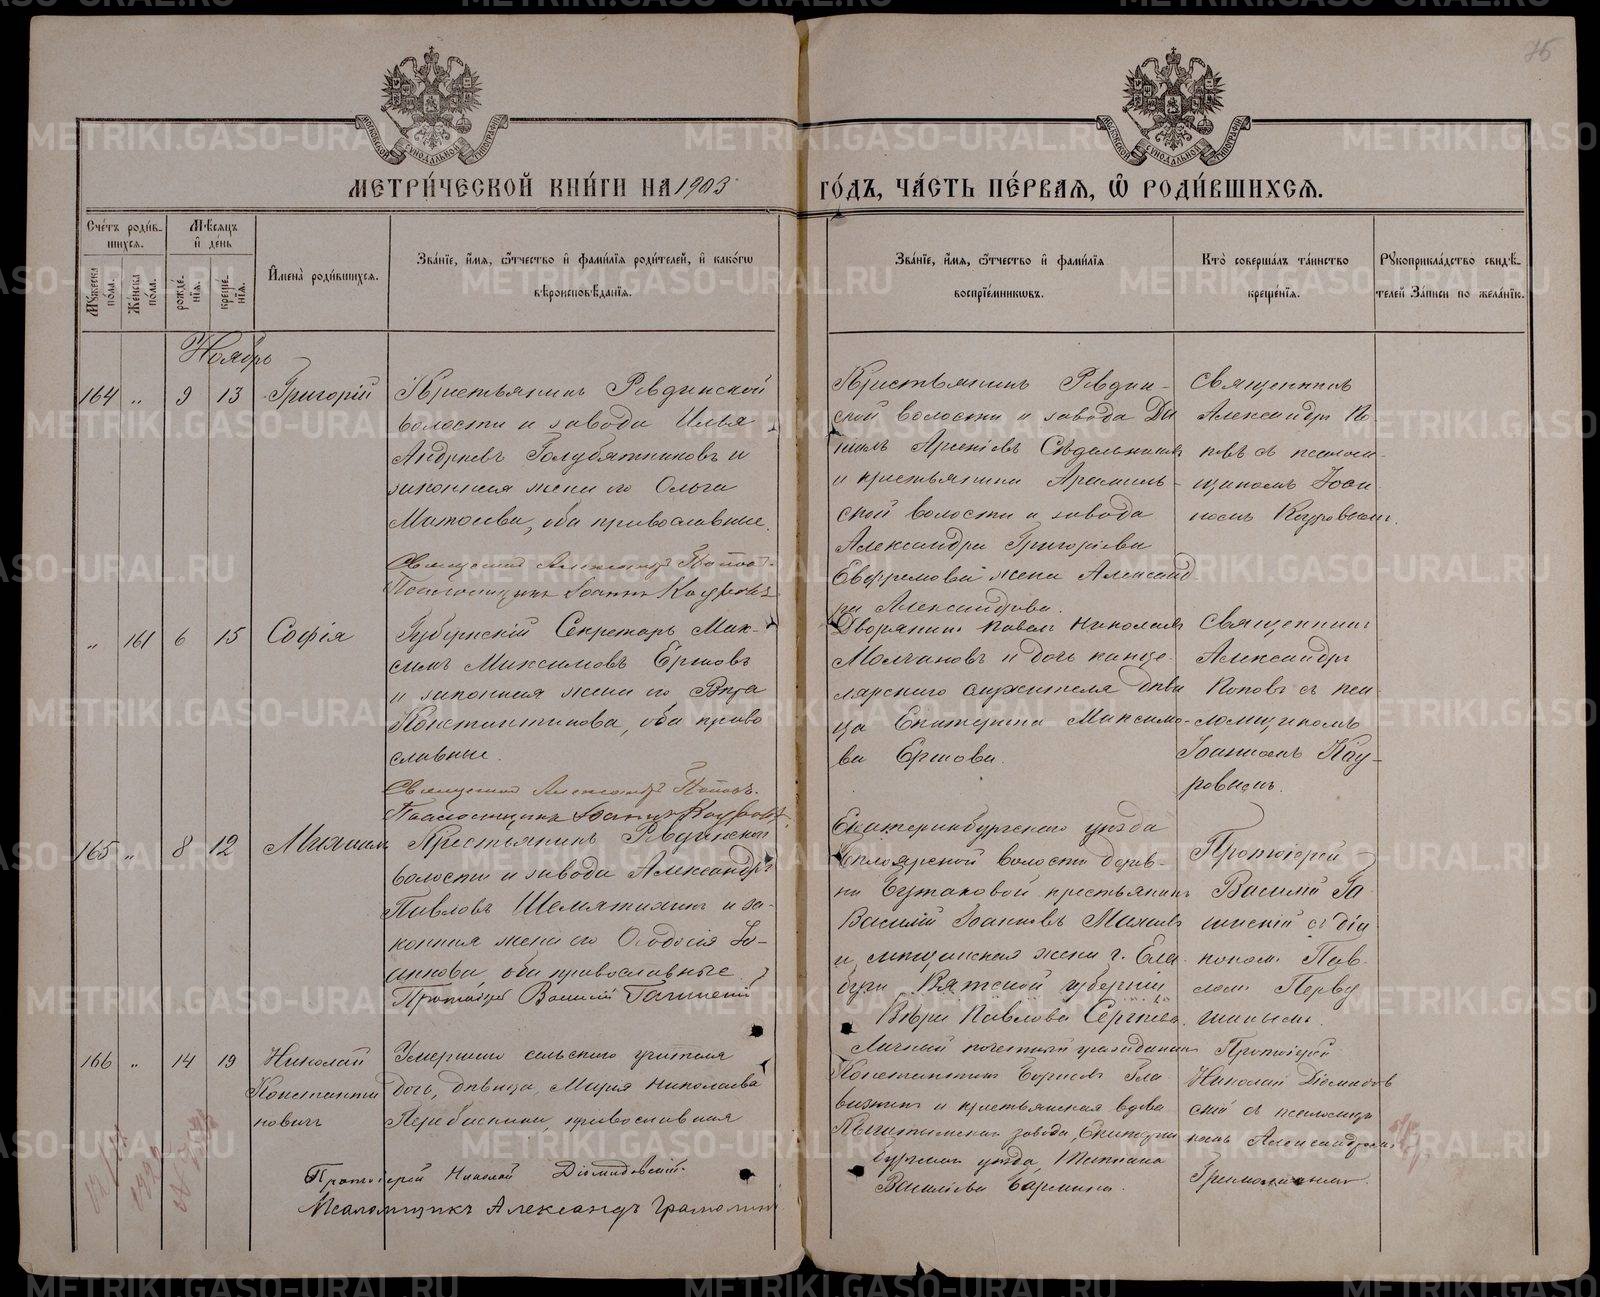 75
МОСКОВСКОЙ СѴНОДАЛЬНОЙ ТИПОГРАФІИ
МОСКОВСКОЙ СѴНОДАЛЬНОЙ ТИПОГРАФІИ
МЕТРИ́ЧЕСКОЙ КНИ́ГИ НА 1903 ГО́ДЪ, ЧА́СТЬ ПЕ́РВАЯ, Ѡ РОДИ́ВШИХСЯ.
Сче́тъ роди́вшихся.
Мꙋ́жеска по́ла.
Же́нска по́ла.
Мѣ́сяцъ и де́нь
рожде́нія.
креще́нія.
И҆мена̀ роди́вшихся.
Зва́ніе, и҆́мя, ѻ҆́тчество и҆ фами́лія роди́телей, и҆ како́гѡ вѣроисповѣ́данія.
Зва́ніе, и҆́мя, ѻ҆́тчество и҆ фами́лія воспріе́мникѡвъ.
Кто̀ соверша́лъ та́инство креще́нія.
Рꙋкоприкла́дство свидѣ́телей за́писи по жела́нію.
Ноябрь
164 „ 9 13 Григорій
Крестьянинъ Ревдинской
волости и завода Илья
Андреевъ Голубятниковъ и
законная жена его Ольга
Матѳеева, оба православные.
Священникъ Александръ Поповъ.
Псаломщикъ Іоаннъ Кауровъ
Крестьянинъ Ревдин-
ской волости и завода Да
ніилъ Арсеніевъ Сѣдельников
и крестьянина Арамиль-
ской волости и завода
Александра Григоріева
Евфремова жена Александ
ра Александрова.
Священникъ
Александръ По
повъ съ псалом-
щикомъ Іоан
номъ Кауровымъ.
„ 161 6 15 Софія
Губернскій Секретарь Мак-
симъ Максимовъ Ершовъ
и законная жена его Вѣра
Константинова, оба право
славные.
Священникъ Александръ Поповъ.
Псаломщикъ Іоаннъ Кауровъ
Дворянинъ Павелъ Николаевъ
Молчановъ и дочь канце-
лярскаго служителя дѣви
ца Екатерина Максимо-
ва Ершова.
Священникъ
Александръ
Поповъ съ пса
ломщикомъ
Іоанномъ Кау-
ровымъ.
165 „ 8 12 Михаилъ
Крестьянинъ Ревдинской
волости и завода Александръ
Павловъ Шемятихинъ и за-
конная жена его Ѳеодосія Іо-
аннова, оба православные.
Протоіерей Василій Гашинскій
Екатеринбургскаго уѣзда
Белоярской волости дерев-
ни Бутаковой крестьянинъ
Василій Іоанновъ
и мѣщанская жена г. Ела
буги Вятской губерніи
Вѣра Павлова Сергѣева.
Протоіерей
Василій Га
шинскій съ діа
кономъ Пав
ломъ Перву
шинымъ.
166 „ 14 19 Николай
Константи
новичъ
Умершаго сельскаго учителя
дочь, дѣвица, Марія Николаева
православная
Протоіерей Николай Діомидовскій.
Псаломщикъ Александръ Грамолинъ
Личный почетный гражданинъ
Константинъ Борисовъ Гла
визнинъ и крестьянская вдова
завода, Екатерин
бургскаго уѣзда, Татіана
Васильева
Протоіерей
Николай Діомидов
скій съ псаломщи
комъ Александромъ
Грамолинымъ.
METRIKI.GASO-URAL.RU